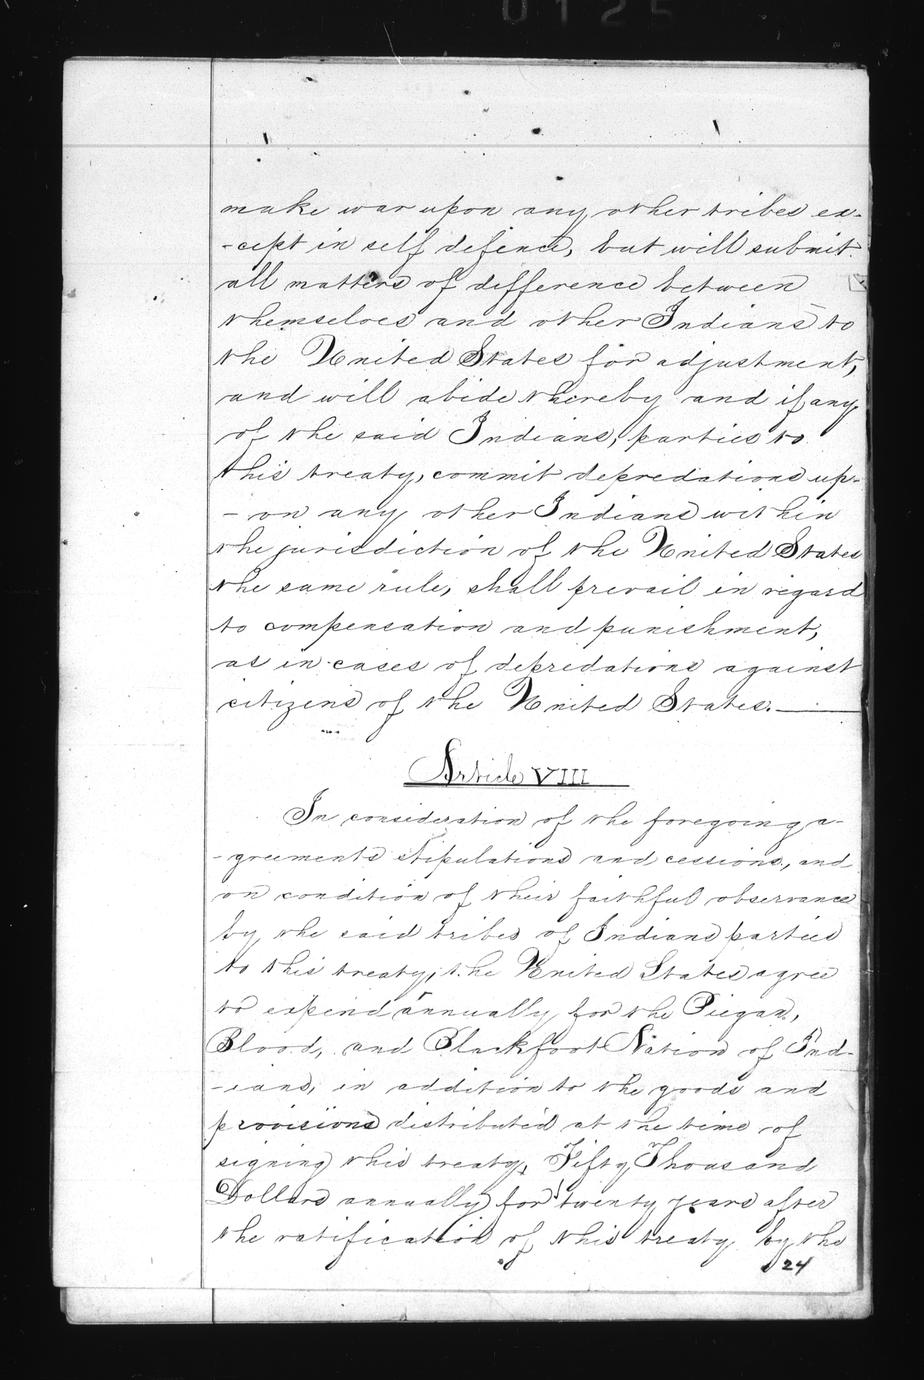 0125
make war upon any other tribes ex-
-cept in self defence, but will submit
all matters of difference between
themselves and other Indians to
the United States for adjustment,
and will abide thereby and if any
of the said Indians, parties to
this treaty, commit depredations up-
- on any other Indians within
the jurisdiction of the United States
the same rule, shall prevail in regard
to compensation and punishment,
as in cases of depredations against
citizens of the United States.
Article VIII
In consideration of the foregoing a-
-greements stipulations and cessions, and
on condition of their faithful observance
by the said tribes of Indians parties
to this treaty, the United States agree
to expend annually for the Piegan,
Blood, and Blackfoot Nation of Ind-
-ians, in addition to the goods and
provisions distributed at the time of
signing this treaty, Fifty Thousand
Dollars annually for twenty years after
the ratification of this treaty by the
24